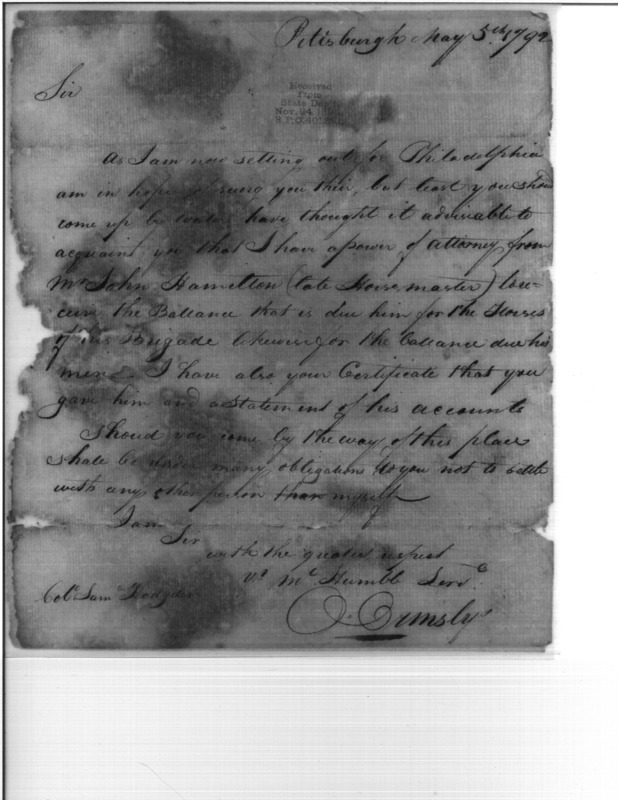 Pittsburgh May 5th 1792
Sir
Received
from
State De
Nov. 24
R.P.O.
As I am now setting out for Philadelphia
am in hopes of seeing you their, but least you should
come up be water have thought it adviseable to
acquaint you that I have a power of attorney from
Mr John Hamelton (late Horse master) to re-
ceive the Ballance that is due him for the Horses
of his Brigade likewise for the ballance due his
mens. I have also your Certificate that you
gave him and a statement of his accounts
Should you come by the way of this place
shall be under many obligations to you not to settle
with any other person than myself
I am
Sir
with the greatest respect
yr Mt Humble Servt
O. Ormsby
Colo Saml Hodgdon